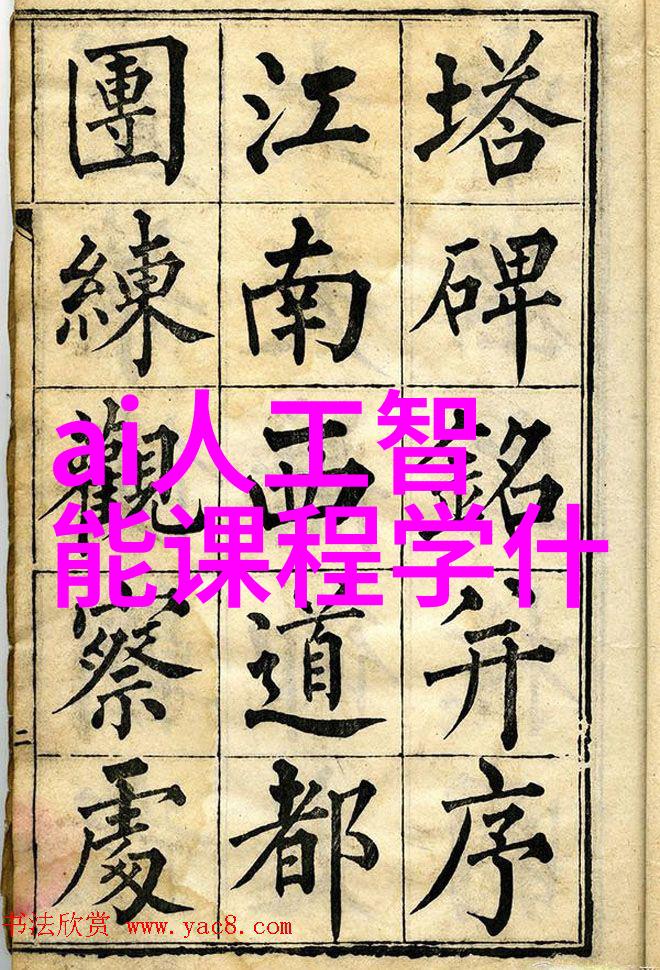 塔碑銘并序
江南西道都
團練觀察處
二
ai人工智
能课程学什
书法欣赏 www.yac8.com